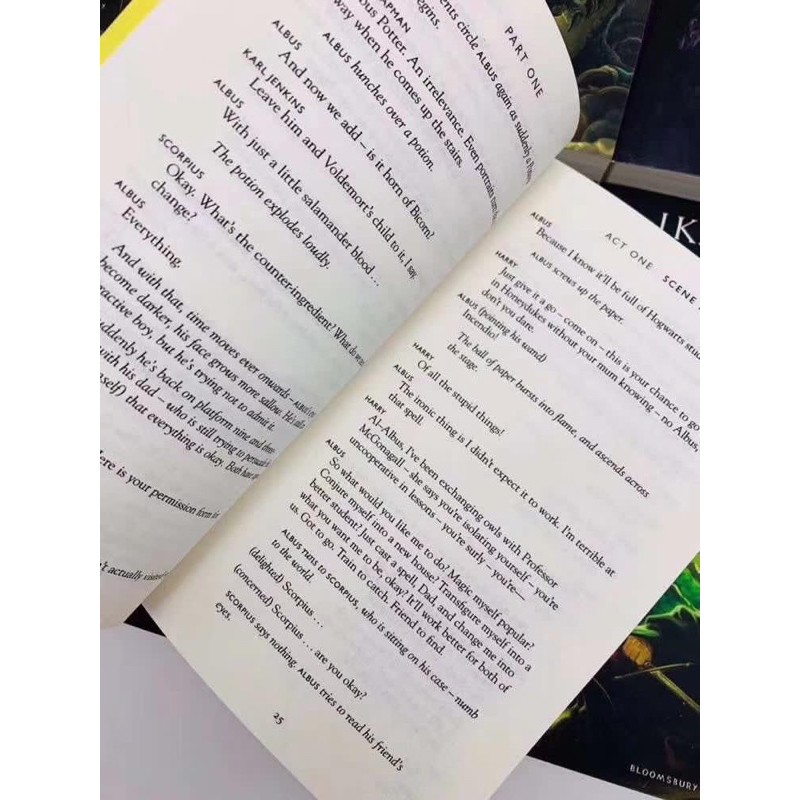 PART ONE
ents circle ALBUS again as suddenly a
begins.
APMAN
ous Potter. An irrelevance. Even portraits
way when he comes up the stairs.
ALBUS hunches over a potion.
ALBUS
And now we add – is it horn of Bicorn?
KARL JENKINS
Leave him and Voldemort's child to it, I say.
ALBUS
With just a little salamander blood ...
The potion explodes loudly.
SCORPIUS
Okay. What's the counter-ingredient? What do we
change?
ALBUS
Everything.
And with that time moves ever onwards – ALBUS's
become darker, his face grows more sallow. He's
ractive boy, but he's trying not to admit it.
uddenly he's back on platform nine and
with his dad – who is still trying to persuade
self) that everything is okay. Both have
Here is your permission form
't actually visited
ACT ONE SCENE
ALBUS
Because I know it'll be full of Hogwarts stud
ALBUS screws up the paper.
HARRY
Just give it a go – come on – this is your chance to go
in Honeydukes without your mum knowing – no, Albus,
don't you dare.
ALBUS (pointing his wand)
Incendio!
The ball of paper bursts into flame, and ascends across
the stage.
HARRY
Of all the stupid things!
ALBUS
The ironic thing is I didn't expect it to work. I'm terrible at
that spell.
HARRY
Al-Albus, I've been exchanging owls with Professor
McGonagall – she says you're isolating yourself – you're
uncooperative in lessons – you're surly – you're—
ALBUS
So what would you like me to do? Magic myself popular?
Conjure myself into a new house? Transfigure myself into a
better student? Just cast a spell, Dad, and change me into
what you want me to be, okay? It'll work better for both of
us. Got to go. Train to catch. Friend to find.
ALBUS runs to SCORPIUS, who is sitting on his case – numb
to the world.
(delighted) Scorpius ...
(concerned) Scorpius ... are you okay?
SCORPIUS says nothing. ALBUS tries to read his friend's
eyes.
25
J.K.
BLOOMSBURY